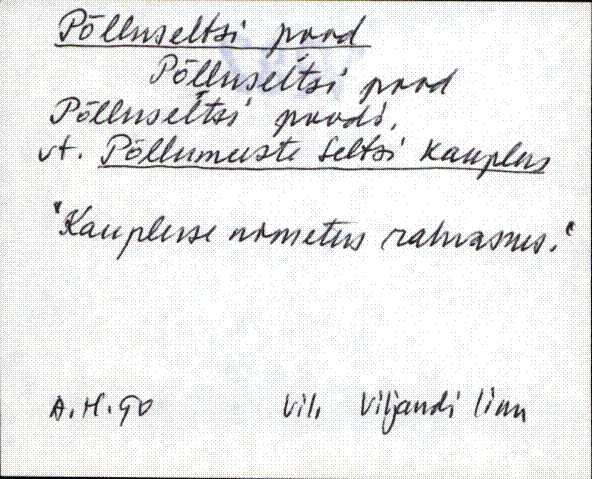 Põlluseltsi pood
Põlluseltsi pood
Põlluseltsi poodi,
vt. Põllumeeste Seltsi kauplus
"Kaupluse nimetus rahvasuus."
A.H. 90 Vil. Viljandi linn